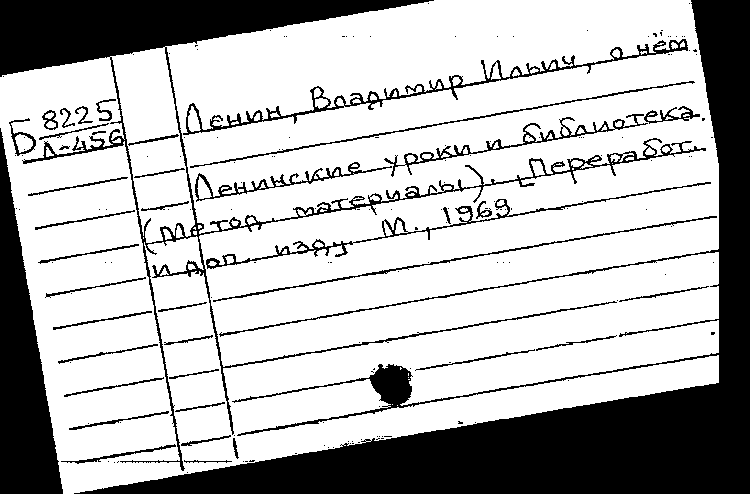 Б 8225
Л-456
Ленин, Владимир Ильич, о нём.
Ленинские уроки и библиотека.
(Метод. материалы). [Переработ.
и доп. изд]. М., 1969